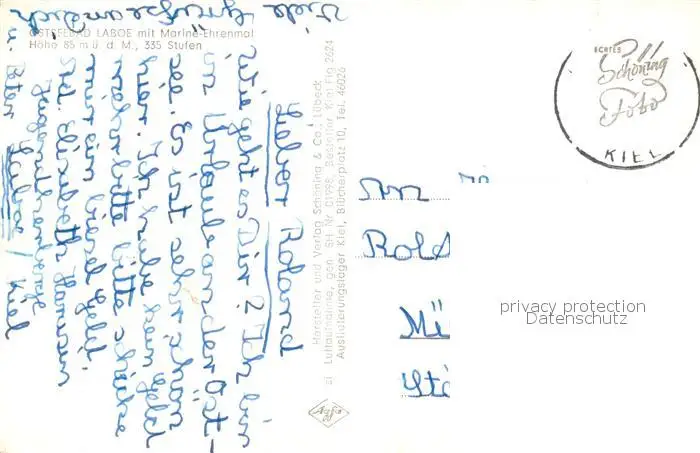 OSTSEEBAD LABOE mit Marine-Ehrenmal
Höhe 85 m ü. d. M., 335 Stufen
Lieber Roland
Wie geht es Dir? Ich bin
im Urlaub an der Ost-
see. Es ist sehr schön
hier. Ich habe kein Geld
mehr bitte bitte schicke
mir ein bissel Geld.
Jugendherberge
Laboe / Kiel
Viele Grüße an Dich
u. Peter
Hersteller und Verlag Schöning & Co., Lübeck
Luftaufnahme, gen. SH Nr. Besteller Kiel Ho 2624
Auslieferungslager Kiel, Blücherplatz 10, Tel. 46026
Agfa
ECHTES
Schöning
Foto
KIEL
An
Rol
Mü
privacy protection
Datenschutz